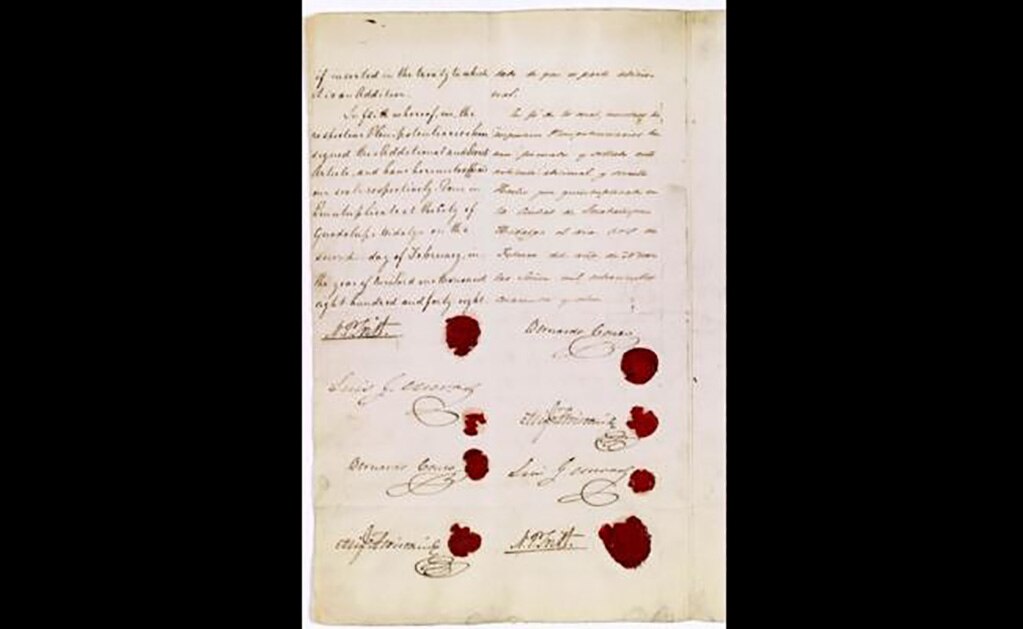 if inserted in the treaty to which
it is an Addition.
In faith whereof, we, the
respective Plenipotentiaries have
signed this Additional and Secret
Article, and have hereunto affixed
our seals respectively. Done in
Quintuplicate at the City of
Guadalupe Hidalgo on the
second day of February, in
the year of Our Lord one thousand
eight hundred and forty eight.
N. P. Trist.
Luis G. Cuevas
Bernardo Couto
Migl Atristain
dado de que es parte
En fé de lo cual,
Plenipotenciarios
y sellado este
articulo adicional y secreto
Hecho por quintuplicado en
la Ciudad de Guadalupe
Hidalgo el dia dos de
Febrero del año de
Señor mil ochocientos
cuarenta y ocho
Bernardo Couto
Migl Atristain
Luis G. Cuevas
N. P. Trist.